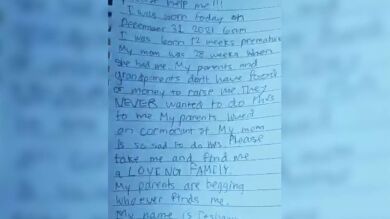 please help me!!!
I was born today on
December 31 2021 6am
I was born 12 weeks premature
My mom was 28 weeks when
she had me. My parents and
grandparents dont have food
or money to raise me. They
NEVER wanted to do this
to me My parents
an My mom
is so sad to do this. Please
take me and find me
a LOVING FAMILY.
My parents are begging
whoever finds me.
My name is